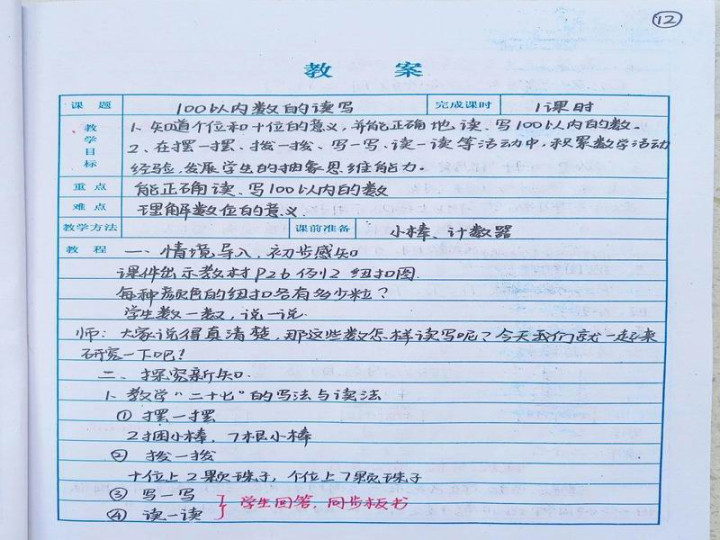 12
教 案
课 题 100以内数的读写 完成课时 1课时
教学目标 1、知道个位和十位的意义,并能正确地读、写100以内的数。
2、在摆一摆、拨一拨、写一写、读一读等活动中,积累数学活动
经验,发展学生的抽象思维能力。
重 点 能正确读、写100以内的数
难 点 理解数位的意义.
教学方法 课前准备 小棒、计数器
教 程 一、情境导入,初步感知
课件出示教材P26例2 纽扣图.
每种颜色的纽扣各有多少粒?
学生数一数,说一说.
师:大家说得真清楚,那这些数怎样读写呢?今天我们就一起来
研究一下吧!
二、探究新知.
1、教学“二十七”的写法与读法
① 摆一摆
2捆小棒,7根小棒
② 拨一拨
十位上2颗珠子,个位上7颗珠子
③ 写一写
④ 读一读
学生回答,同步板书